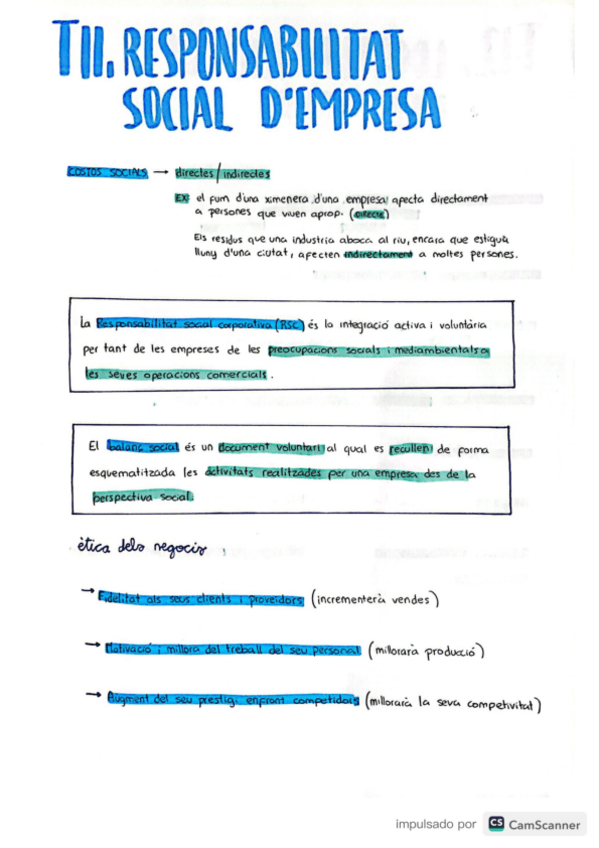 T11. RESPONSABILITAT
SOCIAL D'EMPRESA
COSTOS SOCIALS → directes/indirectes
EX: el fum d'una ximenera d'una empresa afecta directament
a persones que viuen aprop. (directe)
Els residus que una industria aboca al riu, encara que estigui
lluny d'una ciutat, afecten indirectament a moltes persones.
La Responsabilitat social corporativa (RSC) és la integració activa i voluntària
per tant de les empreses de les preocupacions socials i mediambientals a
les seves operacions comercials.
El balanç social és un document voluntari al qual es recullen de forma
esquematitzada les activitats realitzades per una empresa des de la
perspectiva social.
ètica dels negocis
→ Fidelitat als seus clients i proveïdors (incrementerà vendes)
→ Motivació i millora del treball del seu personal (millorarà producció)
→ Augment del seu prestigi enfront competidors (millorarà la seva competivitat)
impulsado por CS CamScanner